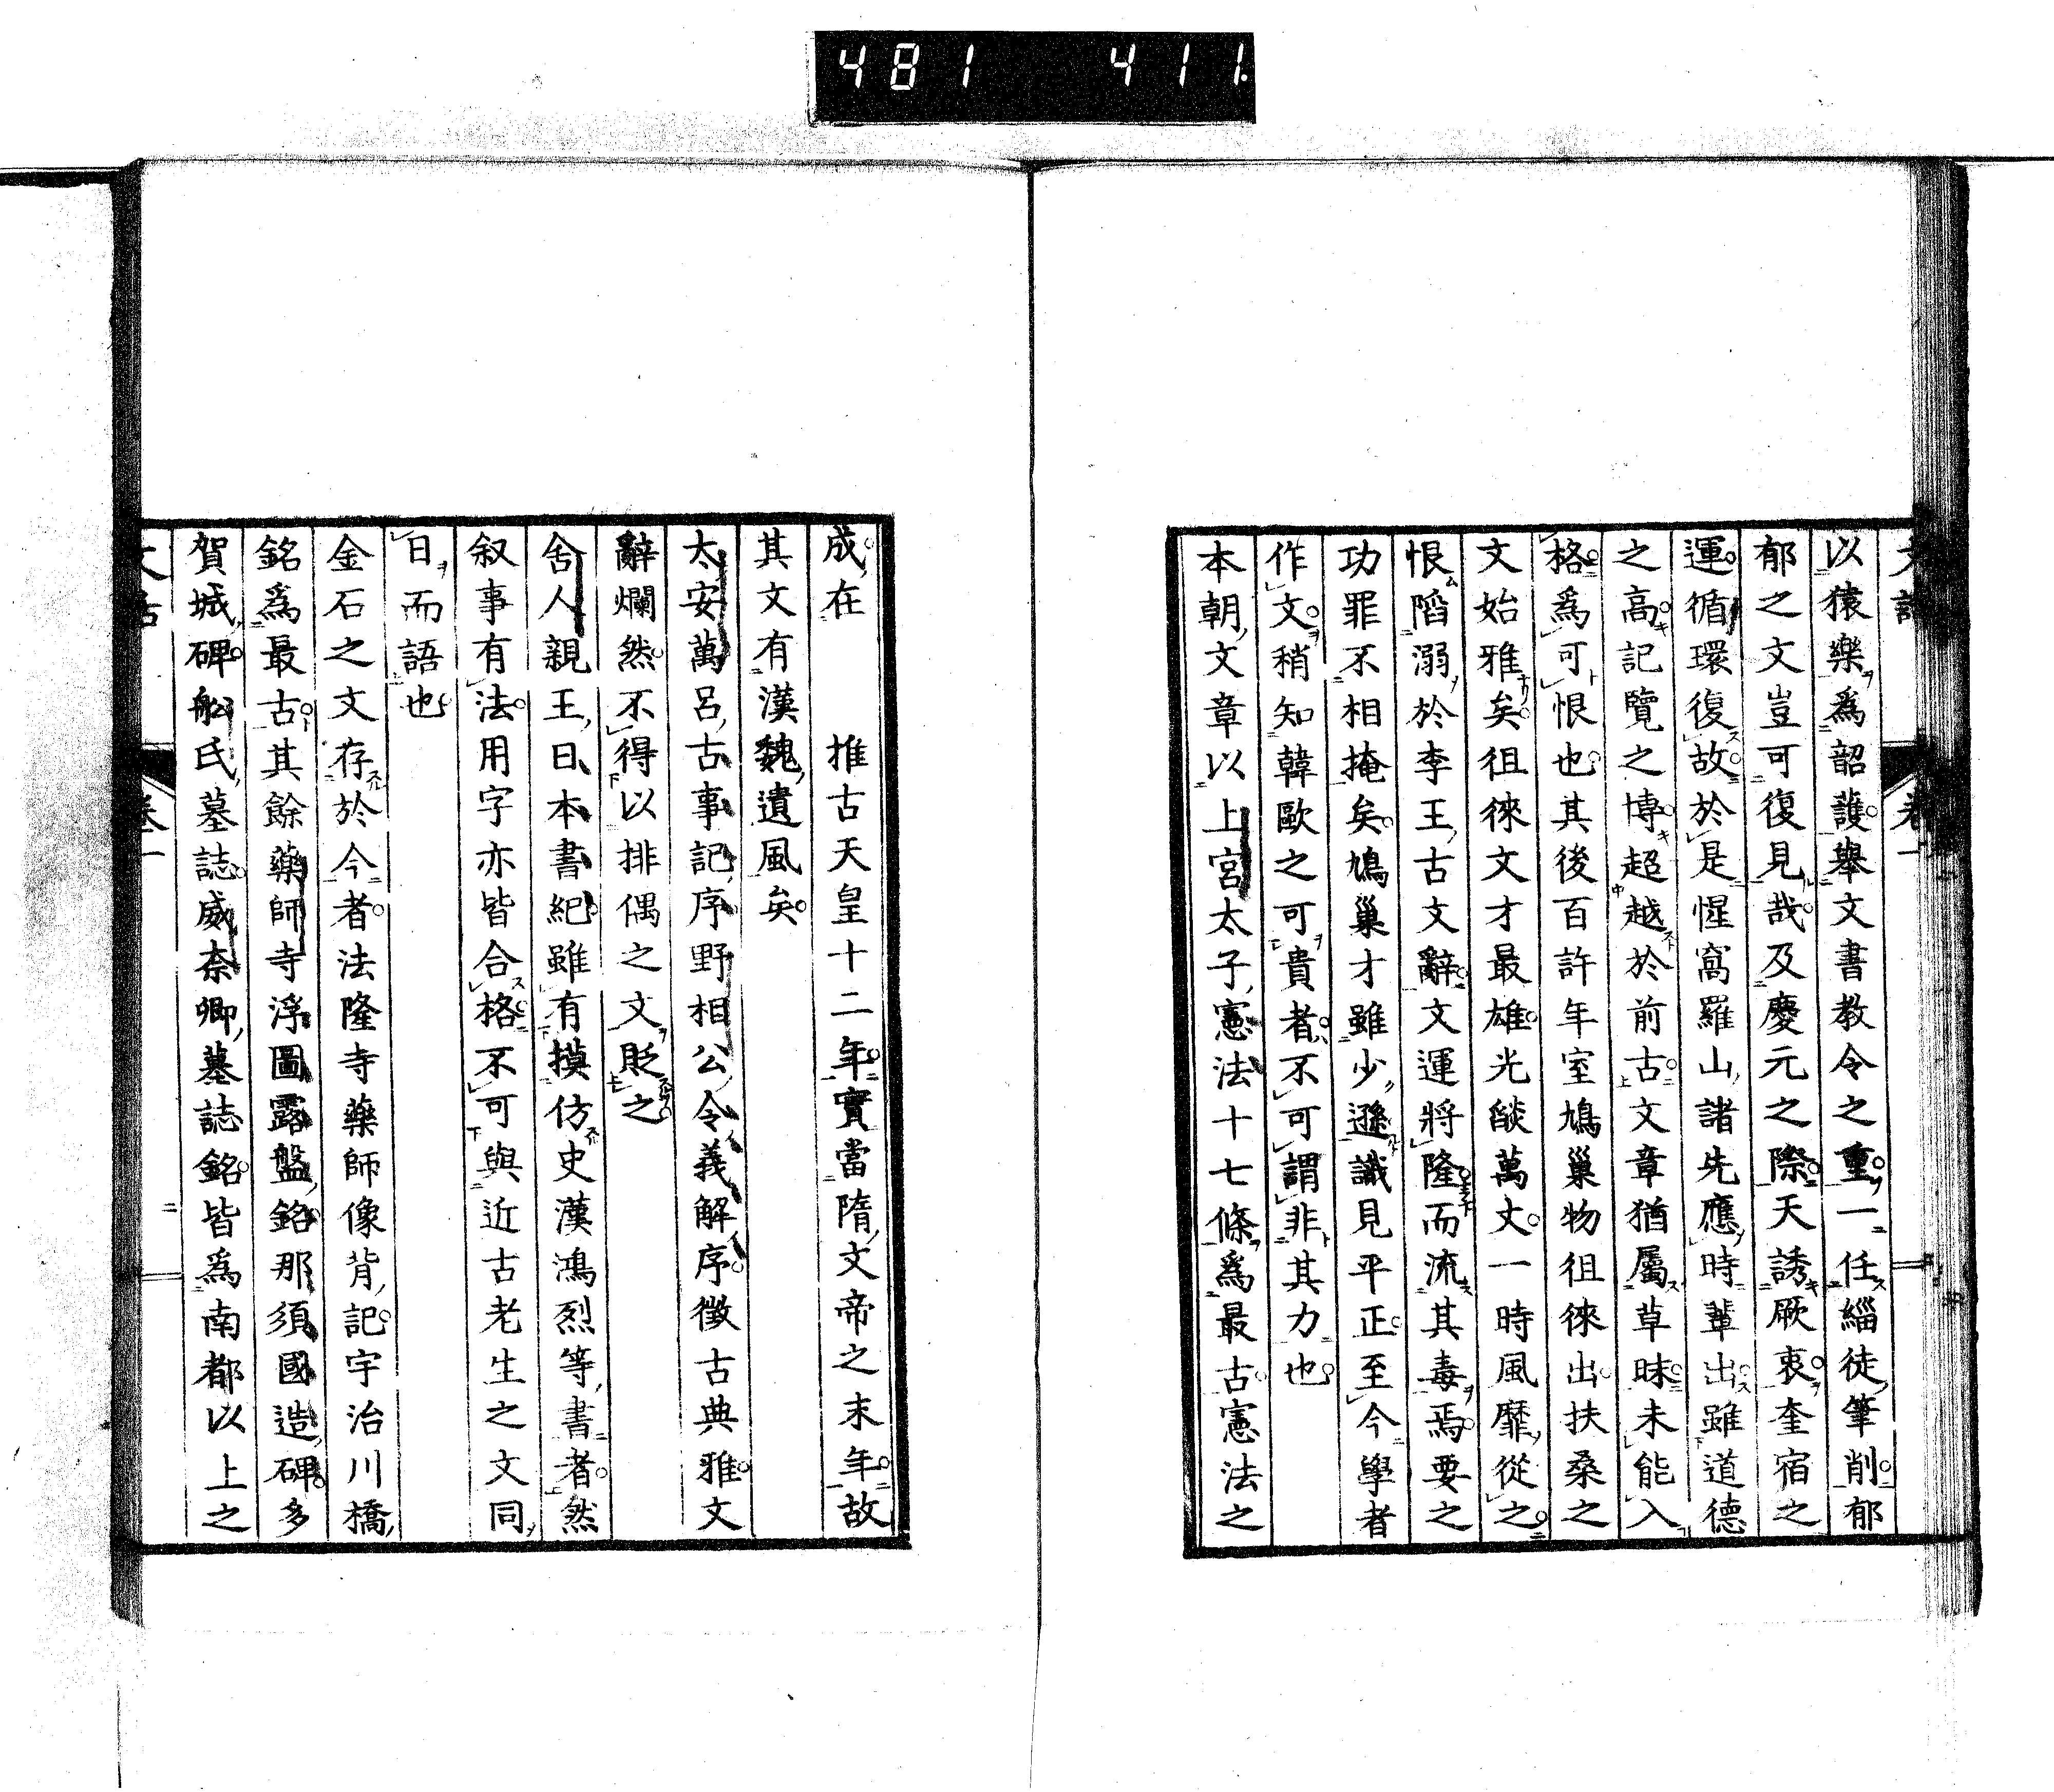 481 411.
文話 卷一
以猿樂爲韶護舉文書教令之重一任緇徒筆削郁
郁之文豈可復見哉及慶元之際天誘厥衷奎宿之
運循環復故於是惺窩羅山諸先應時輩出雖道德
之高記覽之博超越於前古文章猶屬草昧未能入
格爲可恨也其後百許年室鳩巢物徂徠出扶桑之
文始雅矣徂徠文才最雄光燄萬丈一時風靡從之
恨陷溺於李王古文辭文運將隆而流其毒焉要之
功罪不相掩矣鳩巢才雖少遜識見平正至今學者
作文稍知韓歐之可貴者不可謂非其力也
本朝文章以上宮太子憲法十七條爲最古憲法之
成在 推古天皇十二年實當隋文帝之末年故
其文有漢魏遺風矣
太安萬呂古事記序野相公令義解序徵古典雅文
辭爛然不得以排偶之文貶之
舍人親王日本書紀雖有摸仿史漢鴻烈等書者然
叙事有法用字亦皆合格不可與近古老生之文同
日而語也
金石之文存於今者法隆寺藥師像背記宇治川橋
銘爲最古其餘藥師寺浮圖露盤銘那須國造碑多
賀城碑船氏墓誌威奈卿墓誌銘皆爲南都以上之
文話 卷一 二